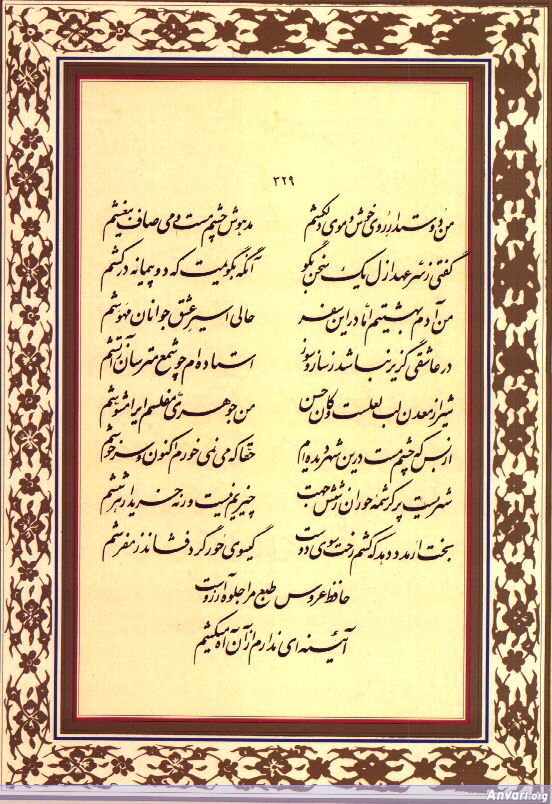 ۳۲۹
من دوستدار روی خوش و موی دلکشم مدهوش چشم مست و می صاف بیغشم
گفتی ز سر عهد ازل یک سخن بگو آنگه بگویمت که دو پیمانه درکشم
من آدم بهشتیم اما درین سفر حالی اسیر عشق جوانان مهوشم
در عاشقی گزیر نباشد ز ساز و سوز استاده‌ام چو شمع مترسان ز آتشم
شیراز معدن لب لعلست و کان حسن من جوهری مفلسم ایرا مشوشم
از بس که چشم مست درین شهر دیده‌ام حقا که می نمی خورم اکنون و سرخوشم
شهریست پر کرشمه حوران ز شش جهت چیزیم نیست ورنه خریدار هر ششم
بخت ار مدد دهد که کشم رخت سوی دوست گیسوی حور گرد فشاند ز مفرشم
حافظ عروس طبع مرا جلوه آرزوست
آئینه‌ای ندارم از آن آه میکشم
Anvari.org